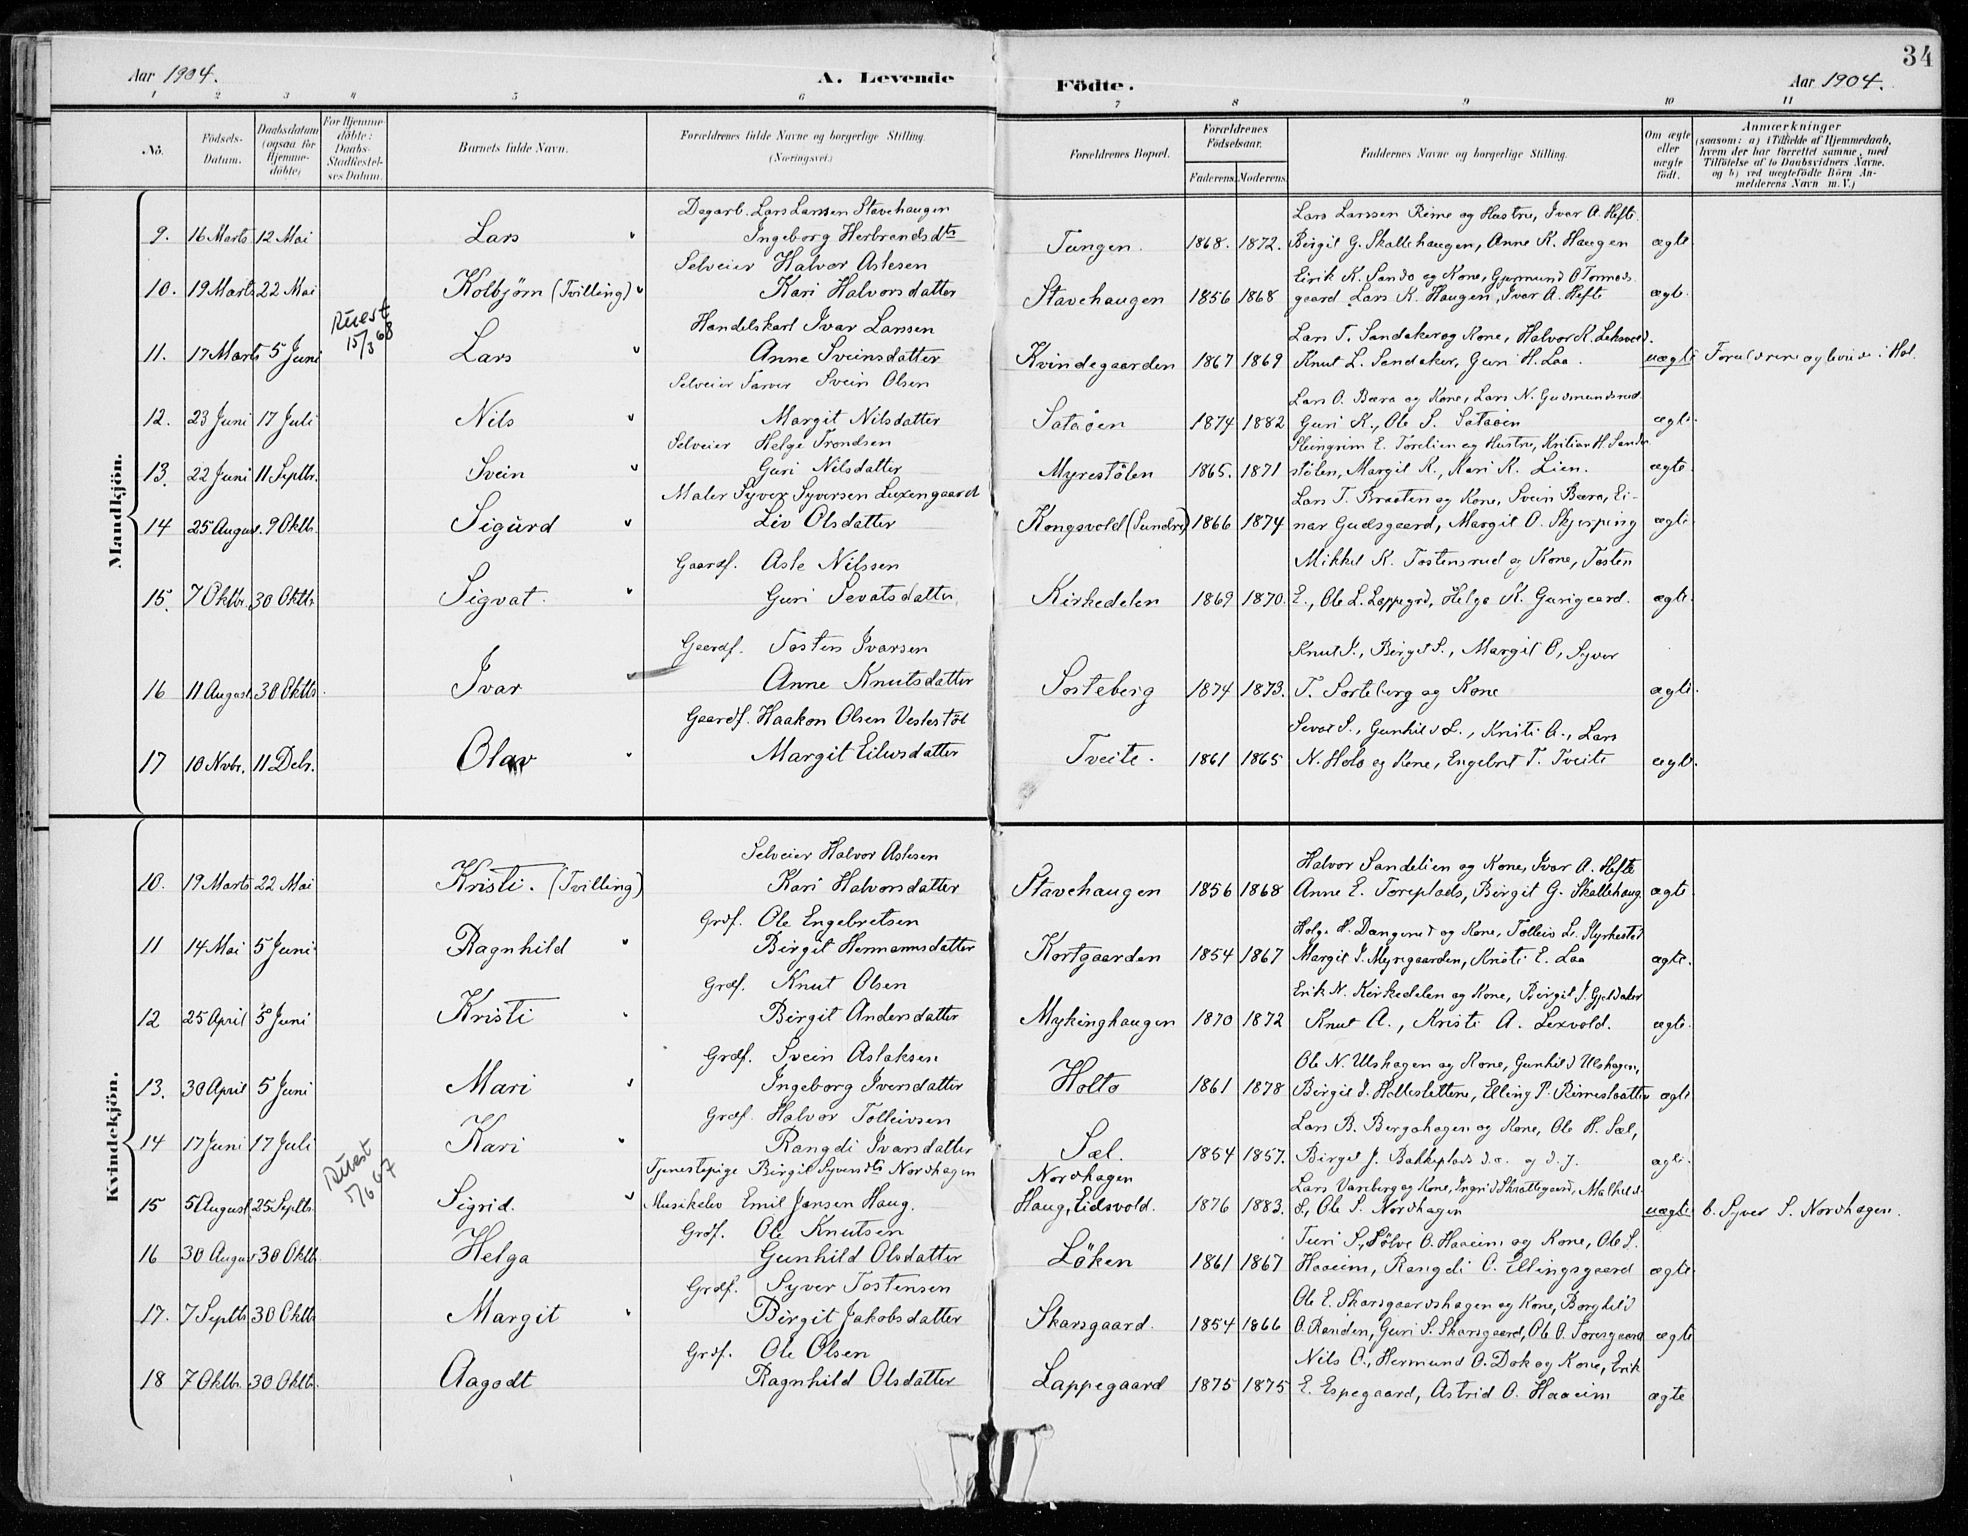 34
Aar 1904. A. Levende Födte. Aar 1904.
1 2 3 4 5 6 7 8 9 10 11
No. Födsels-Datum. Daabsdatum (ogsaa for Hjemme-döbte) For Hjemme-döbte: Daabs-Stadfæstel-ses Datum. Barnets fulde Navn. Forældrenes fulde Navne og borgerlige Stilling. (Næringsvei.) Forældrenes Bopæl. Forældrenes Födselsaar. Faderens. Moderens. Faddernes Navne og borgerlige Stilling. Om ægte eller uægte födt. Anmærkninger (saasom: a) i Tilfælde af Hjemmedaab, hvem der har forrettet samme, med Tilföielse af to Daabsvidners Navne, og b) ved uægtefödte Börn An-melderens Navn m. V.)
Mandkjön.
Dagarb. Lars Larssen Stavehaugen Lars Larssen Reime og Hustru, Ivar A. Hefte.
9. 16 Marts 12 Mai Lars Ingeborg Herbrandsdtr Tungen. 1868. 1872. Birgit G. Skallehaugen, Anne K. Haugen ægte.
Selveier Halvor Aslesen Eirik K. Sando og Kone, Gjermund O Tormods
10. 19 Marts 22 Mai Kolbjörn (Tvilling) Kari Halvorsdatter Stavehaugen 1856 1868 gaard Lars K. Haugen, Ivar A. Hefte ægte.
Attest 15/3 68
Handelskarl Ivar Larssen Lars T. Sandaker og Kone, Halvor K.
11. 17 Marts 5 Juni Lars Anne Sveinsdatter Kvindegaarden 1867 1869 Knut L. Sandaker, Guri H. Laa. uægte i Hol.
Selveier Farver Svein Olsen Lars O. Bæra og Kone, Lars N. Gudmundsrud
12. 23 Juni 17 Juli Nils Margit Nilsdatter Sataöen 1874 1882 Guri K., Ole S. Sataöen ægte.
Selveier Helge Trondsen Steingrim E. Torelien og Hustru, Kristian H. Sando
13. 22 Juni 11 Septbr. Svein Guri Nilsdatter Myrestölen 1865. 1871 stölen, Margit K., Kari K. Lien. ægte.
Maler Syver Syversen Luxengaard Lars T. Braaten og Kone, Svein Bæra, Ei-
14 25 August. 9 Oktb. Sigurd Liv Olsdatter Kongsvold (Sundre) 1866 1874 nar Gudsgaard, Margit O. Skjerping ægte.
Gaardf. Asle Nilssen Mikkel K. Tostensrud og Kone, Tosten
15. 7 Oktbr. 30 Oktb. Sigvat. Guri Sevatsdatter. Kirkedelen 1869 1870. E., Ole L. Lappegrd, Helge K. Gurigaard. ægte.
Gaardf. Tosten Ivarsen Knut S., Birgit S., Margit O, Syver
16 11 August. 30 Oktb. Ivar Anne Knutsdatter Sorteberg 1874 1873. T. Sorteberg og Kone ægte.
Gaardf. Haakon Olsen Veslestöl Sevat S., Gunhild L., Kristi A., Lars
17 10 Nvbr. 11 Debr. Olav Margit Eilevsdatter Tveite. 1861 1865 N. Holo og Kone, Engebret T. Tveite ægte.
Kvindekjön.
Selveier Halvor Aslesen Halvor Sandelien og Kone, Ivar A. Hefte
10. 19 Marts 22 Mai Kristi. (Tvilling) Kari Halvorsdatter Stavehaugen 1856 1868 Anne E. Toreplads, Birgit G. Skallehaug. ægte.
Grdf. Ole Engebretsen Helge H. Dangerud og Kone, Tolleiv L. Styrkestöl
11 14 Mai 5 Juni Ragnhild Birgit Hermannsdatter Kortgaarden 1854 1867 Margit S. Myrgaarden, Kristi E. Laa ægte.
Grdf. Knut Olsen Erik N. Kirkedelen og Kone, Birgit J. Gjeldaker
12 25 April 5 Juni Kristi Birgit Andersdatter Mykinghaugen 1870 1872 Knut A., Kristi A. Lexvold. ægte.
Grdf. Svein Aslaksen Ole N. Ulshagen og Kone, Gunhild Ulshagen,
13. 30 April 5 Juni Mari Ingeborg Iversdatter Holto 1861 1878 Birgit I. Hallestettene, Elling P. ægte
Grdf. Halvor Tolleivsen Lars B. Bergahagen og Kone, Ole H. Sæl,
14 17 Juni 17 Juli Kari Rangdi Ivarsdatter Sæl. 1854 1857. Birgit J. Bakkeplads d.æ. og d.y. ægte.
Attest 5/6 67
Tjenestepige Birgit Syversdtr Nordhagen Nordhagen Lars Varaberg og Kone, Ingrid Skrattegaard, Mathild
15 5 August 25 Septb. Sigrid. Musikelev Emil Jansen Haug. Haug, Eidsvold. 1876 1883. S., Ole S. Nordhagen uægte b. Syver S. Nordhagen.
Grdf. Ole Knutsen Turi S., Sölve O. Haaeim og Kone, Ole S.
16 30 August 30 Oktb. Helga Gunhild Olsdatter Löken 1861 1867 Haaeim, Rangdi O. Ellingsgaard ægte.
Grdf. Syver Tostensen Ole E. Skarsgaardshagen og Kone, Borghild
17. 7 Septb. 30 Oktb. Margit Birgit Jakobsdatter Skarsgaard. 1854 1866 O. Randen, Guri S. Skarsgaard, Ole O. Toresgaard ægte
Grdf. Ole Olsen Nils O., Hermund O. Dok og Kone, Erik
18 7 Oktb. 30 Oktb. Aagodt Ragnhild Olsdatter Lappegaard 1875 1875 E. Espegaard, Astrid O. Haaeim ægte